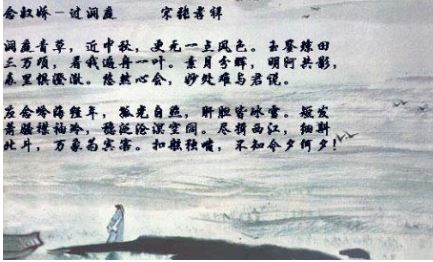 念奴娇－过洞庭 宋张孝祥
洞庭青草，近中秋，更无一点风色。玉鉴琼田
三万顷，着我遍舟一叶。素月分辉，明河共影，
表里俱澄澈。悠然心会，妙处难与君说。
应念岭海经年，孤光自照，肝胆皆冰雪。短发
萧骚襟袖冷，稳泛沧溟空阔。尽挹西江，细斟
北斗，万象为宾客。扣舷独啸，不知今夕何夕！